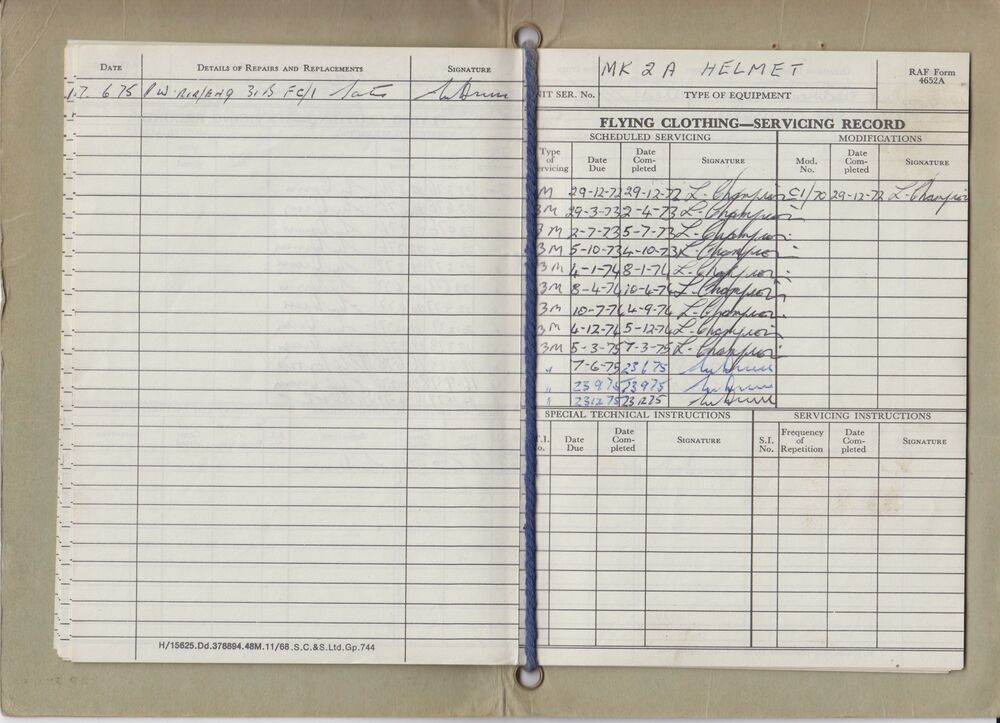 DATE DETAILS OF REPAIRS AND REPLACEMENTS SIGNATURE
6 75 FC/1
H/15625.Dd.378894.48M.11/68.S.C.&S.Ltd.Gp.744
MK 2A HELMET
RAF Form
4652A
NIT SER. No. TYPE OF EQUIPMENT
FLYING CLOTHING—SERVICING RECORD
SCHEDULED SERVICING MODIFICATIONS
Type of ervicing Date Due Date Com-pleted SIGNATURE Mod. No. Date Com-pleted SIGNATURE
M 29-12-72 29-12-72 L. Champion C1/70 29-12-72 L. Champion
3M 29-3-73 2-4-73 L. Champion
3M 2-7-73 5-7-73 L. Champion
3M 5-10-73 4-10-73 L. Champion
3M 4-1-74 8-1-74 L. Champion
3M 8-4-74 10-6-74 L. Champion
3M 10-7-74 4-9-74 L. Champion
3M 4-12-74 5-12-74 L. Champion
3M 5-3-75 7-3-75 L. Champion
" 7-6-75 23 6 75
" 23 9 75 23 9 75
" 23 12 75 23 12 75
SPECIAL TECHNICAL INSTRUCTIONS SERVICING INSTRUCTIONS
T.I. o. Date Due Date Com-pleted SIGNATURE S.I. No. Frequency of Repetition Date Com-pleted SIGNATURE